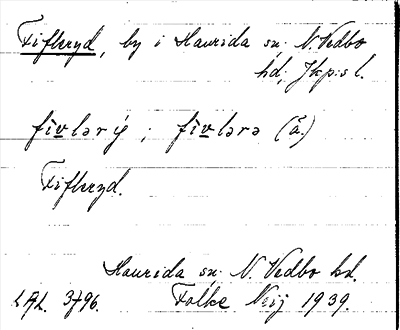 Fifleryd, by i Haurida sn. N. Vedbo
hd; Jkp:s l.
fîvlərý ; fîvlərə (ä.)
Fifleryd.
Haurida sn. N. Vedbo hd.
L.A.L. 3796. Folke 1939.